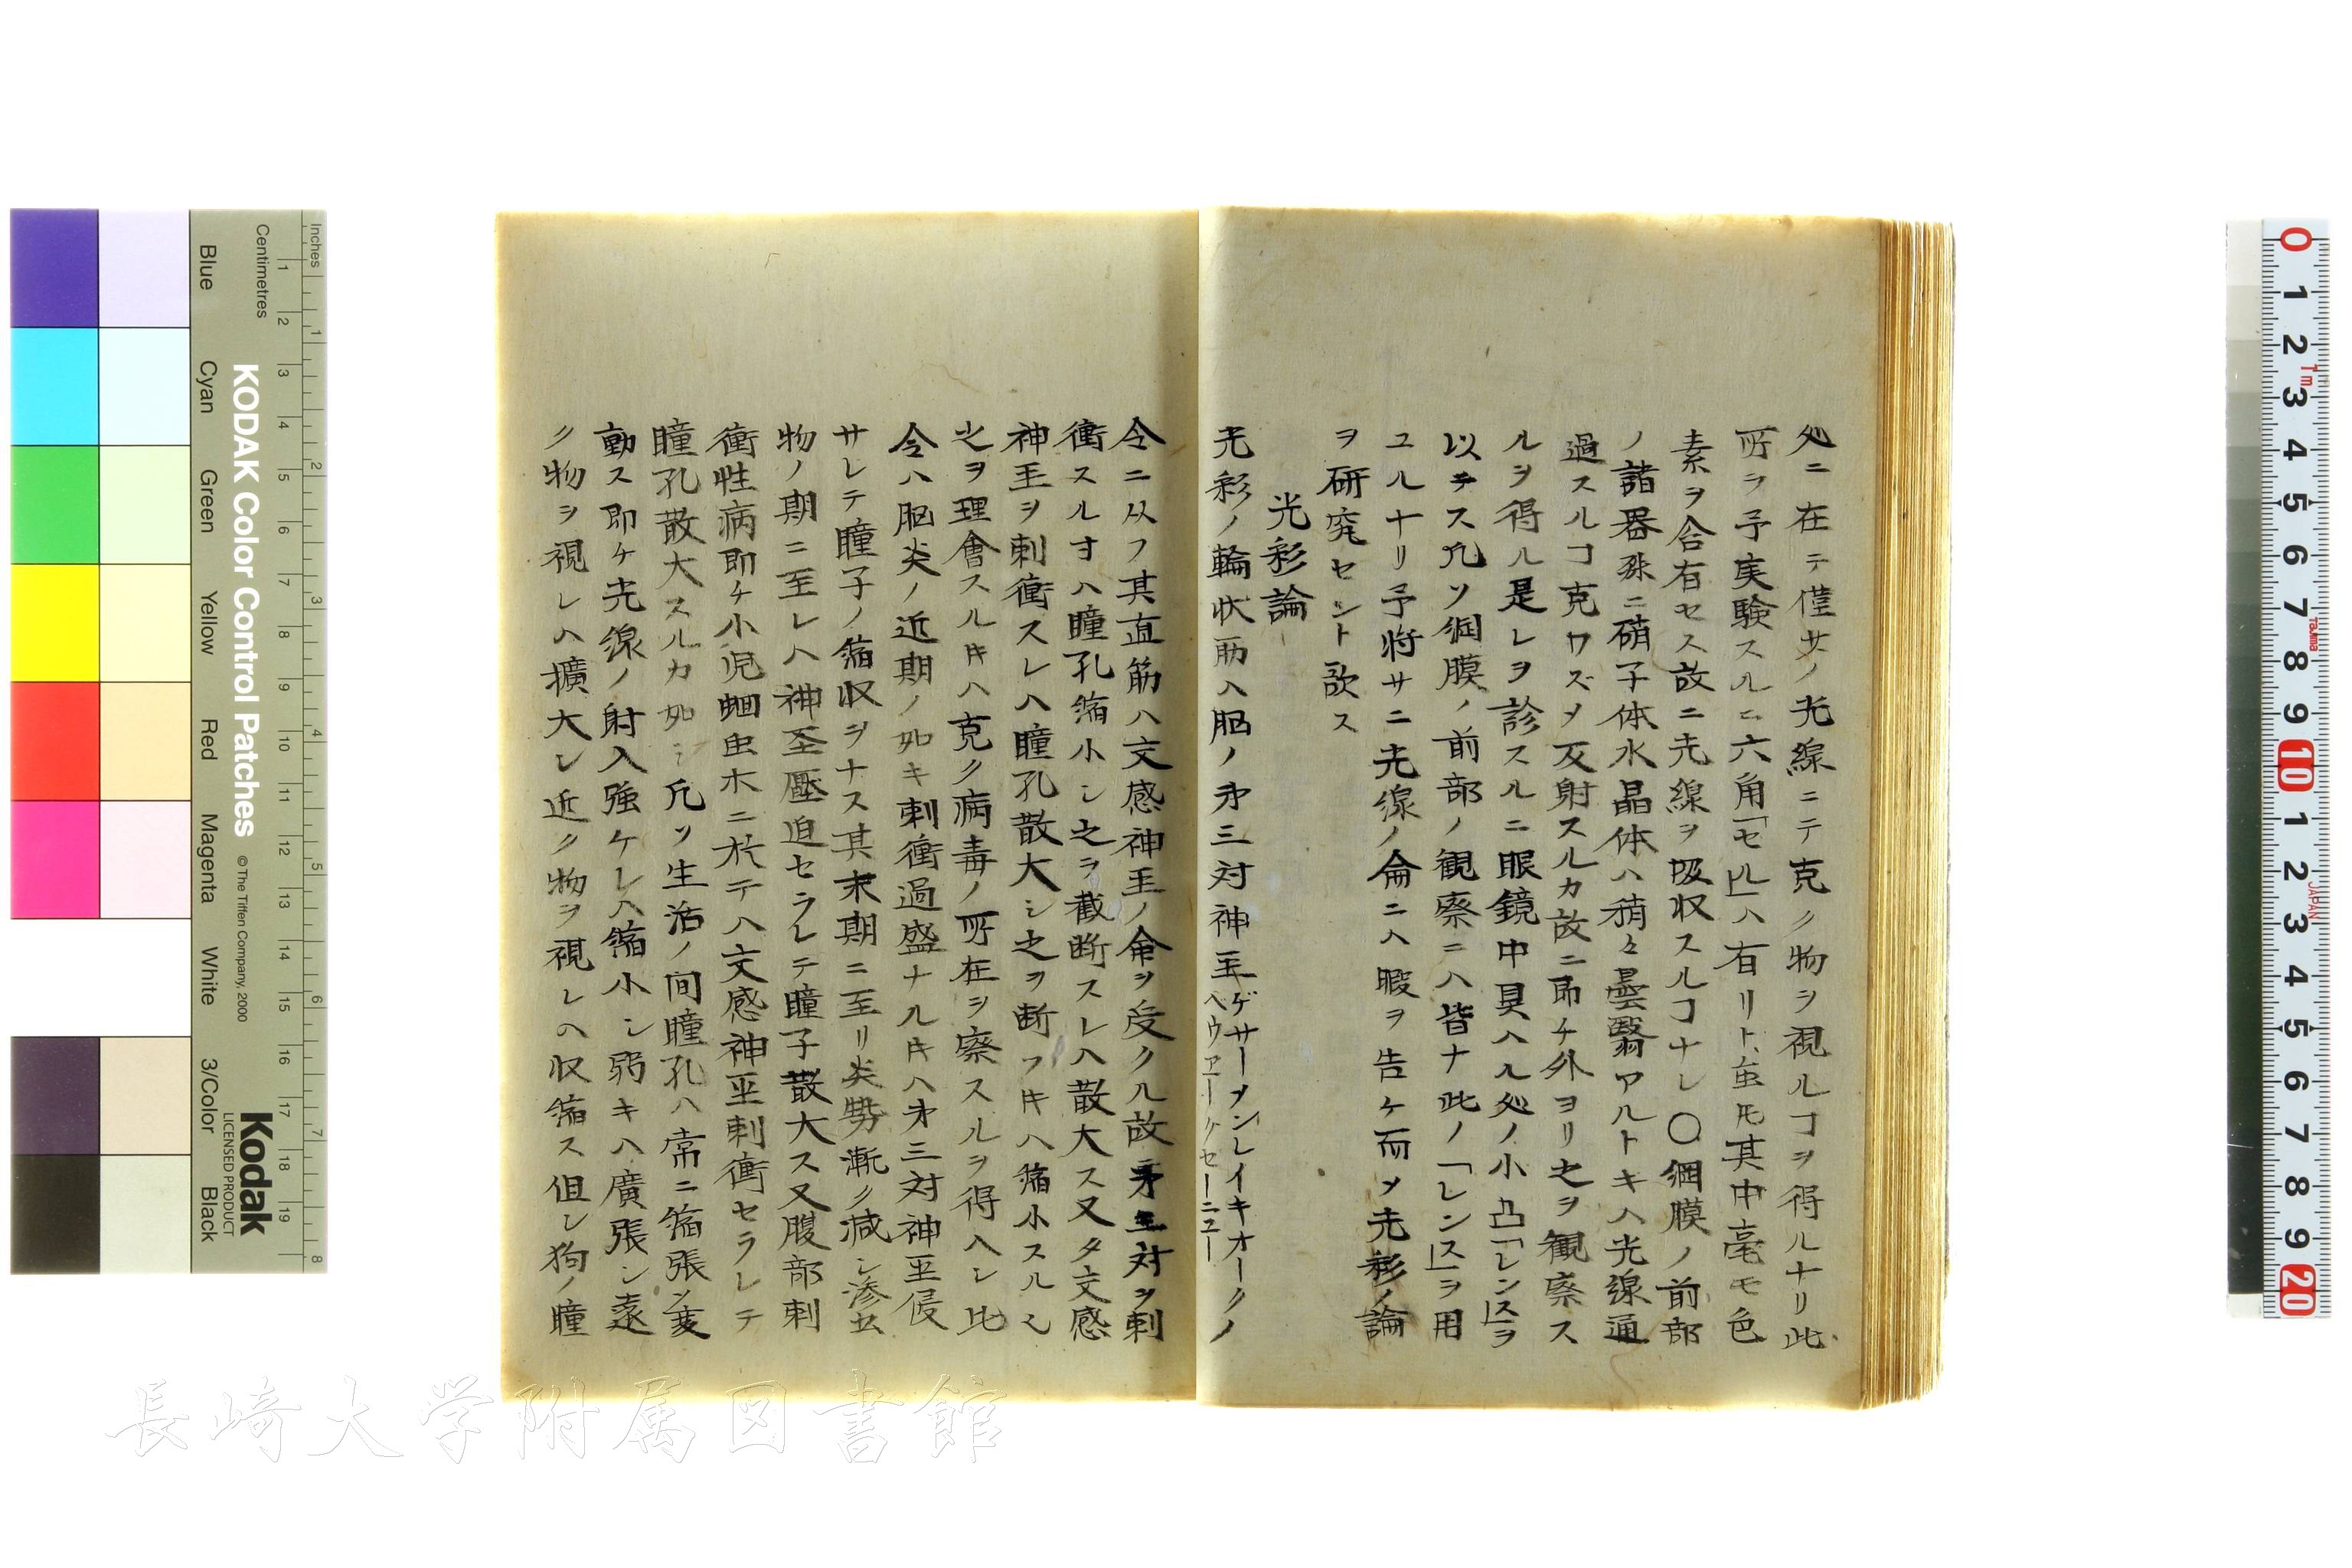 処ニ在テ僅少ノ光線ニテ克ク物ヲ視ルヿヲ得ルナリ此
所ヲ予実験スルニ六角「セル」ハ有リト虽𪜈其中毫モ色
素ヲ含有セス故ニ光線ヲ吸収スルヿナシ〇網膜ノ前部
ノ諸器殊ニ硝子体水晶体ハ稍々曇翳アルトキハ光線通
過スルヿ克ワズ〆反射スルカ故ニ即チ外ヨリ之ヲ観察ス
ルヲ得ル是レヲ診スルニ眼鏡中具ハル処ノ小凸「レンス」ヲ
以テス凡ソ網膜ノ前部ノ観察ニハ皆ナ此ノ「レンス」ヲ用
ユルナリ予将サニ光線ノ侖ニハ暇ヲ告ケ而〆光彩ノ論
ヲ研究セント欲ス
光彩論
光彩ノ輪状筋ハ脳ノ㐧三対神圣
ゲサーメンレイキオークノ
ヘウヱークセーニユー
令ニ从フ其直筋ハ交感神圣ノ命ヲ受クル故㐧三対ヲ刺
衝スルキハ瞳孔縮小シ之ヲ截断スレハ散大ス又タ交感
神圣ヲ刺衝スレハ瞳孔散大シ之ヲ断フキハ縮小スルシ
之ヲ理會スルキハ克ク病毒ノ所在ヲ察スルヲ得ヘシ此
令ハ脳炎ノ近期ノ如キ刺衝過盛ナルキハ㐧三対神圣侵
サレテ瞳子ノ縮収ヲナス其末期ニ至リ炎勢漸ク減シ滲出
物ノ期ニ至レハ神圣壓迫セラレテ瞳子散大ス又腹部刺
衝性病即チ小児蛔虫木ニ於テハ交感神圣刺衝セラレテ
瞳孔散大スルカ如シ凡ソ生活ノ间瞳孔ハ常ニ縮張シ変
動ス即ケ光線ノ射入強ケレハ縮小シ弱キハ廣張シ遠
ク物ヲ視レハ擴大シ近ク物ヲ視レハ収縮ス但シ狗ノ瞳
KODAK Color Control Patches
© The Tiffen Company, 2000
Kodak
LICENSED PRODUCT
Inches
Centimetres
Blue
Cyan
Green
Yellow
Red
Magenta
White
3/Color
Black
長崎大学附属図書館